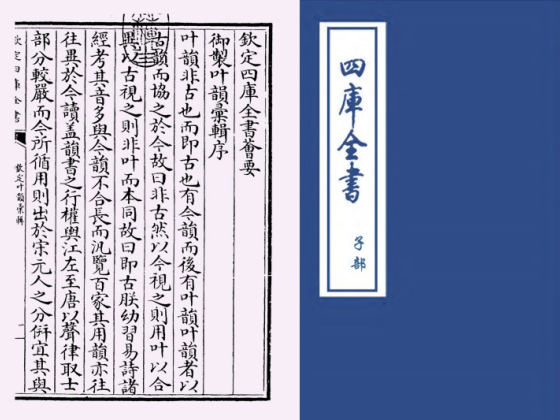 欽定四庫全書薈要
御製叶韻彙輯序
叶韻非古也而即古也有今韻而後有叶韻叶韻者以
古韻而協之於今故曰非古然以今視之則用叶以合
異以古視之則非叶而本同故曰即古朕幼習易詩諸
經考其音多與今韻不合長而汎覽百家其用韻亦往
往異於今讀盖韻書之行權輿江左至唐以聲律取士
部分較嚴而今所循用則出於宋元人之分併宜其與
欽定四庫全書
欽定叶韻彙輯
四庫全書
子部